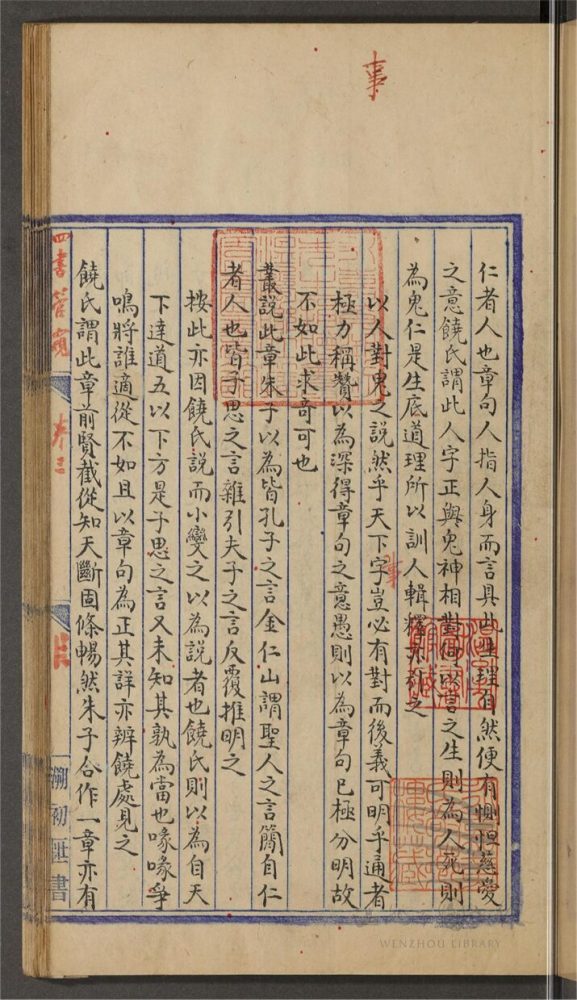 事
仁者人也章句人指人身而言具此生理自然便有惻怛慈愛
之意饒氏謂此人字正與鬼神相對
之生則為人死則
為鬼仁是生底道理所以訓人輯釋亦
之
以人對鬼之說然乎天下字豈必有對而後義可明乎通者
事
極力稱贊以為深得章句之意愚則以為章句已極分明故
不如此求奇可也
叢說此章朱子以為皆孔子之言金仁山謂聖人之言簡自仁
者人也皆子思之言雜引夫子之言反覆推明之
按此亦因饒氏說而小變之以為說者也饒氏則以為自天
下達道五以下方是子思之言又未知其孰為當也喙喙爭
鳴將誰適從不如且以章句為正其詳亦辨饒處見之
饒氏謂此章前賢截從知天斷固條暢然朱子合作一章亦有
四書管窺
卷三
WENZHOU LIBRARY